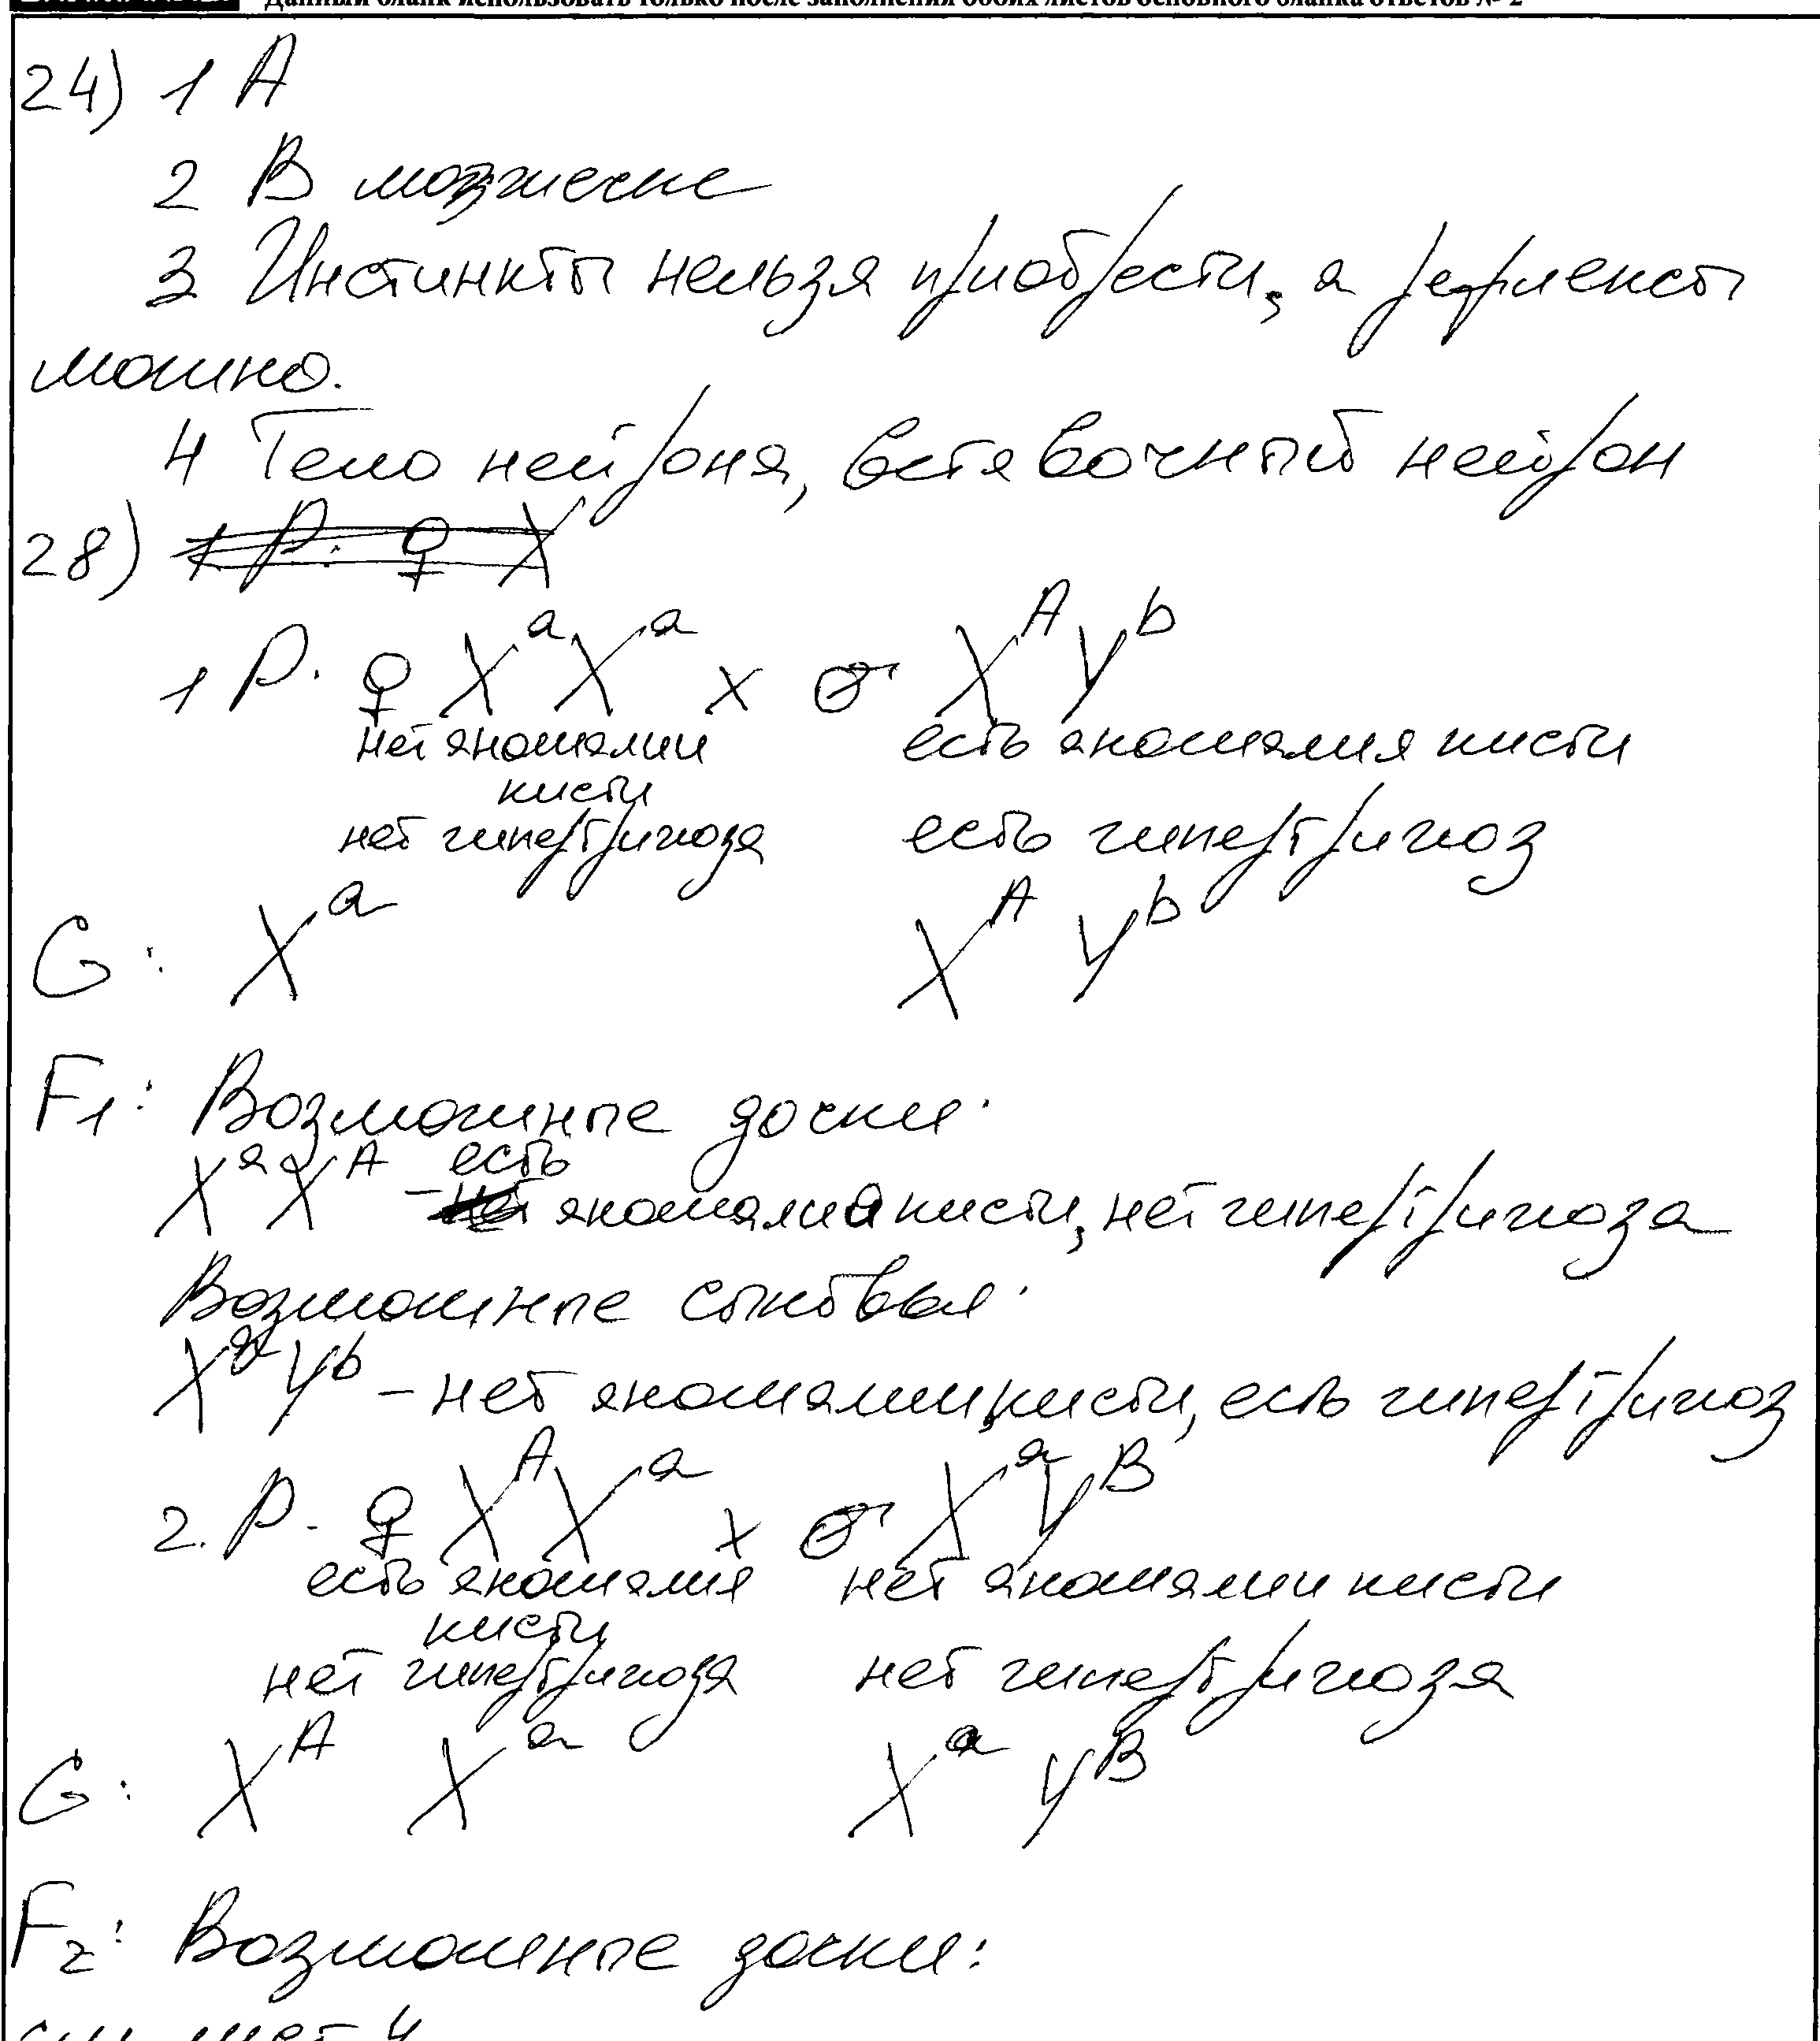 Данный бланк использовать только после заполнения обоих листов основного бланка ответов № 2
24) 1 А
2 В мозжечке
3 Инстинкты нельзя приобрести, а рефлексы
можно.
4 Тело нейрона, вставочный нейрон
28) 1 P: ♀ X
1 P. ♀ XᵃXᵃ x ♂ XᴬYᵇ
нет аномалии есть аномалия кисти
кисти
нет гипертрихоза есть гипертрихоз
G: Xᵃ Xᴬ Yᵇ
F₁: Возможные дочки:
есть
XᵃXᴬ - нет аномалия кисти, нет гипертрихоза
Возможные сыновья:
XᵃYᵇ - нет аномалии кисти, есть гипертрихоз
2. P. ♀ XᴬXᵃ x ♂ XᵃYᴮ
есть аномалия нет аномалии кисти
кисти
нет гипертрихоза нет гипертрихоза
G: Xᴬ Xᵃ Xᵃ Yᴮ
F₂: Возможные дочки:
см лист 4